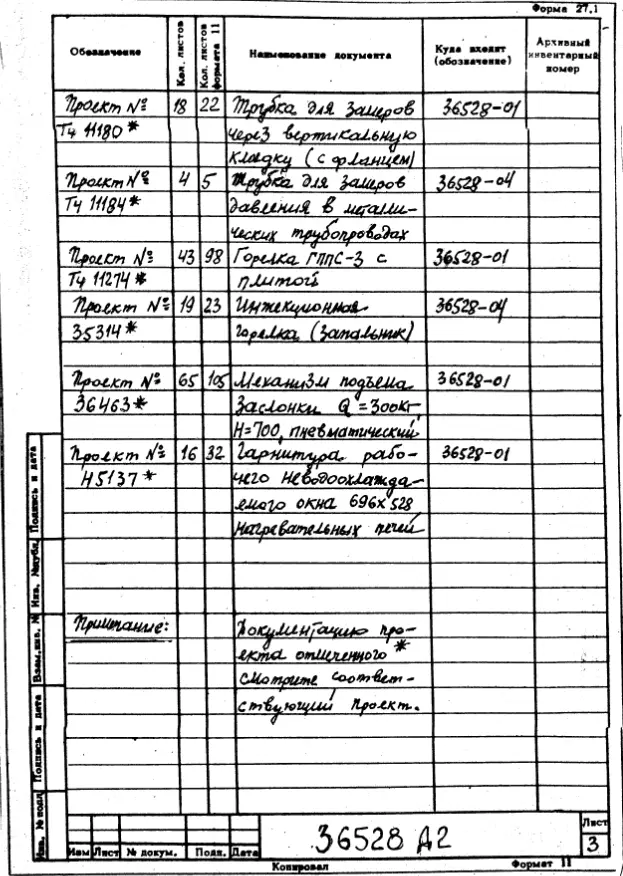 Форма 27.1
Обозначение
Кол. листов
Кол. листов формата 11
Наименование документа
Куда входит (обозначение)
Архивный инвентарный номер
Проект № 18 22 Трубка для замеров 36528-01
Тч 11180* через вертикальную
кладку (с фланцем)
Проект № 4 5 Трубка для замеров 36528-04
Тч 11184* давления в металли-
ческих трубопроводах
Проект № 43 98 Горелка ГППС-3 с 36528-01
Тч 11274* плитой
Проект № 19 23 Инжекционная 36528-04
35314* горелка (Запальник)
Проект № 65 105 Механизм подъема 36528-01
36463* заслонки Q=300кг,
H=700, пневматический
Проект № 16 32 Гарнитура рабо- 36528-01
Н5137* чего неводоохлажда-
емого окна 696х528
нагревательных печей
Примечание: Документацию про-
екта отмеченного *
смотрите соответ-
ствующий проект.
Инв. № подл.
Подпись и дата
Взам. инв. №
Инв. № дубл.
Подпись и дата
Изм Лист № докум. Подп. Дата
36528 Д2
Лист
3
Копировал
Формат 11